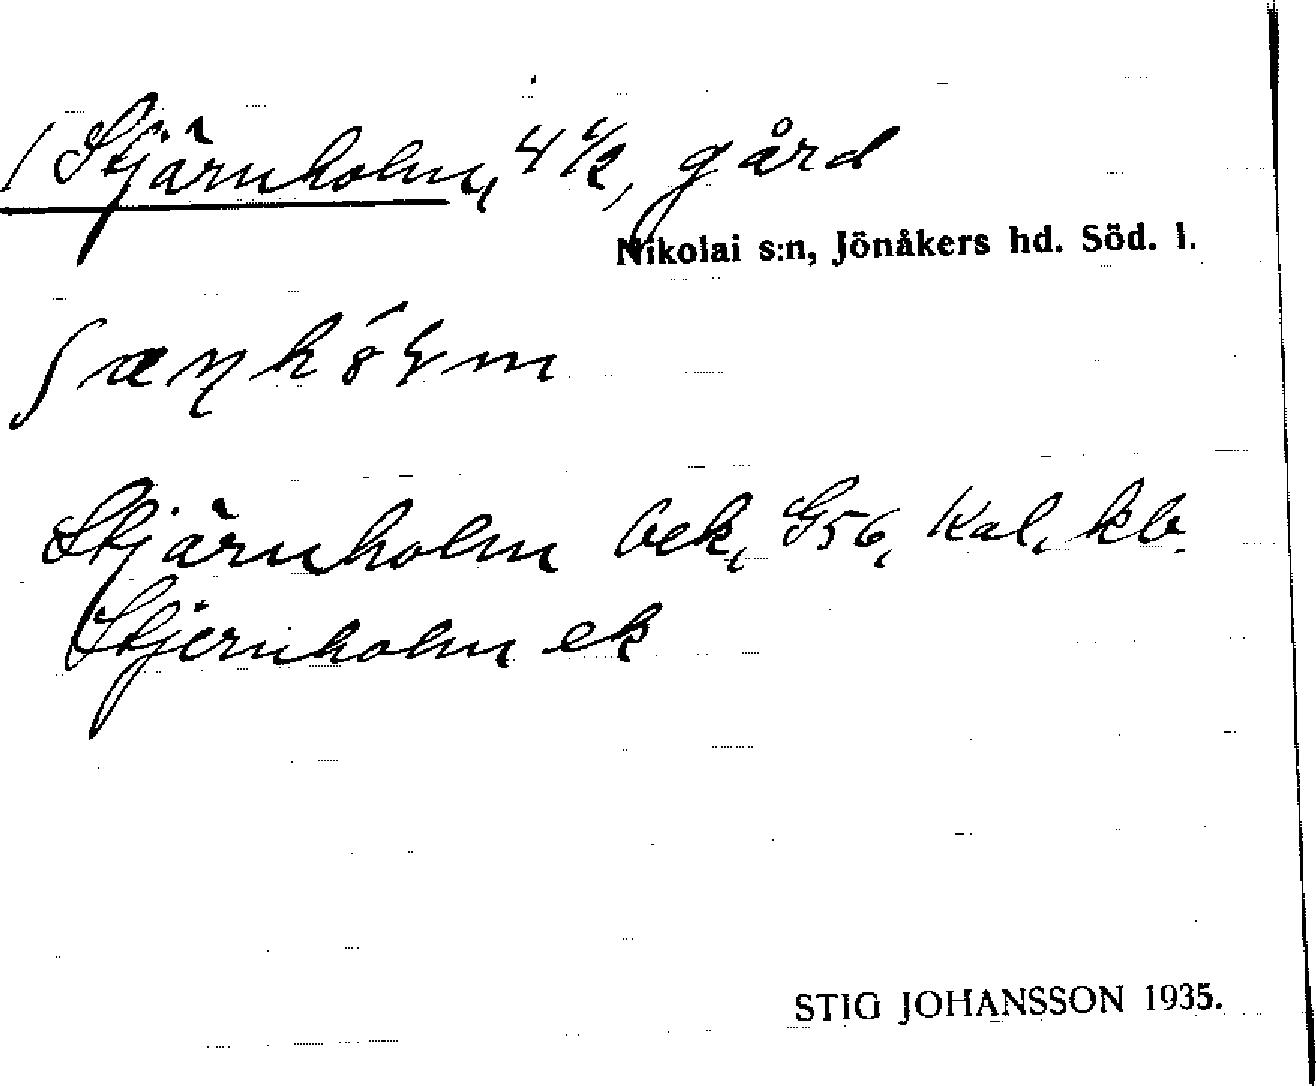 / Stjärnholm, 4 1/2, gård
Nikolai s:n, Jönåkers hd. Söd. l.
Stjärnholm bek, G56, Kal, kb.
Stjernholm ek
STIG JOHANSSON 1935.